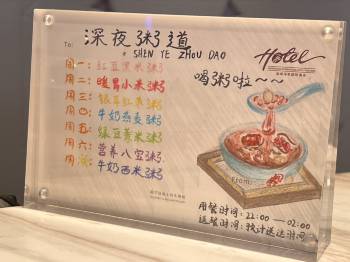 To:
深夜粥道
SHEN YE ZHOU DAO
Hotel
喝粥啦～～
周一：红豆黑米粥
周二：暖胃小米粥
周三：银耳红枣粥
周四：牛奶燕麦粥
周五：绿豆薏米粥
周六：营养八宝粥
周日：牛奶西米粥
From:
用餐时间：22:00—02:00